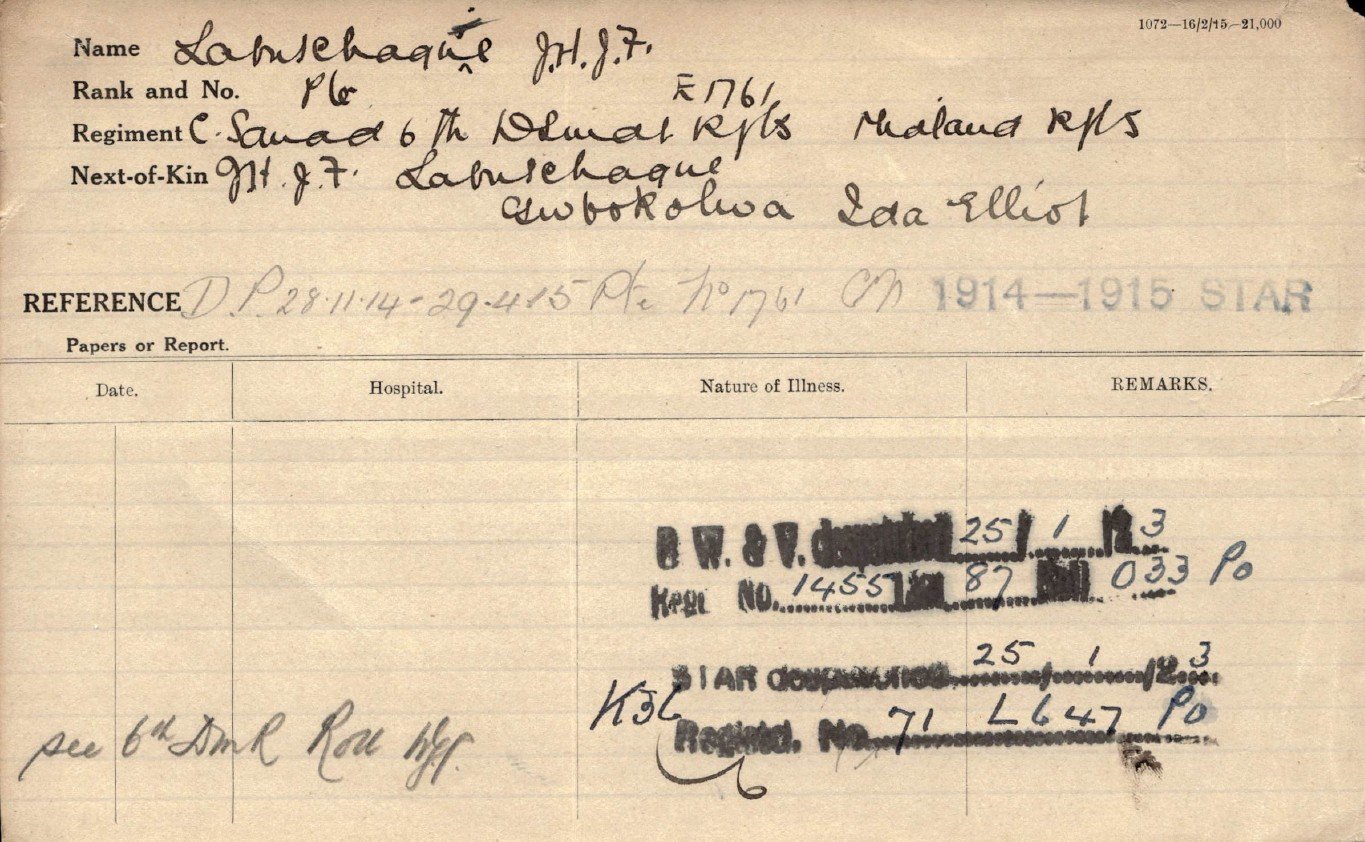 1072—16/2/15—21,000
Name Labuschagne J.H.J.F.
Rank and No. Pte E1761
Regiment C. Squad 6th Dsmdt Rfls Midland Rfls
Next-of-Kin J.H.J.F. Labuschagne
Gwbokolwa Ida Elliot
REFERENCE D.P. 28.11.14 - 29.4.15 Pte No 1761 1914—1915 STAR
Papers or Report.
Date. Hospital. Nature of Illness. REMARKS.
B W. & V. despatched 25/1/23
Regt. No. 1455 87 Roll 033 Po
STAR despatched 25/1/23
K36 Registd. No. 71 L647 Po
see 6th DmR Roll